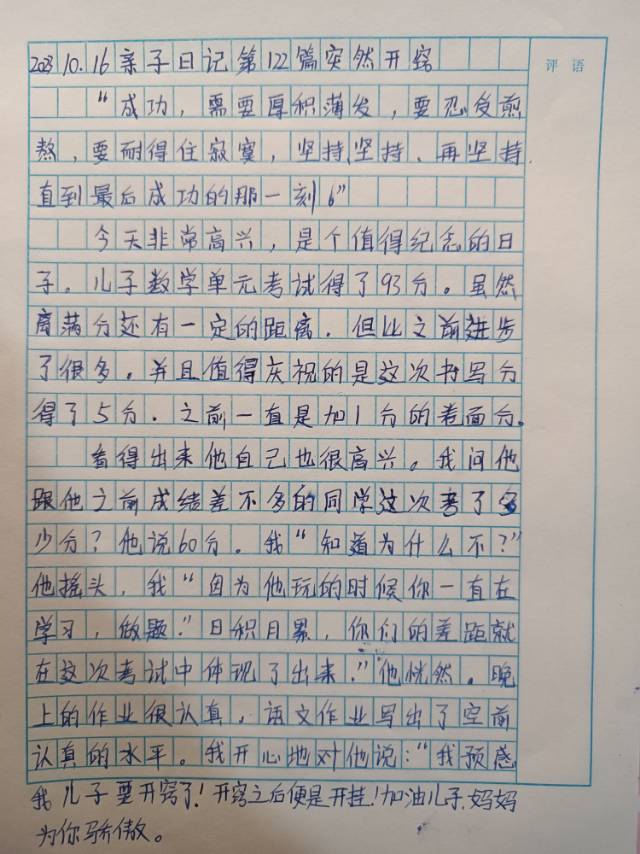 2023 10.16 亲子日记第122篇突然开窍
评语
“成功，需要厚积薄发，要忍受煎
熬，要耐得住寂寞，坚持、坚持、再坚持
直到最后成功的那一刻。”
今天非常高兴，是个值得纪念的日
子。儿子数学单元考试得了93分。虽然
离满分还有一定的距离．但比之前进步
了很多。并且值得庆祝的是这次书写分
得了5分．之前一直是加1分的卷面分。
看得出来他自己也很高兴。我问他
跟他之前成绩差不多的同学这次考了多
少分？他说60分。我“知道为什么不？”
他摇头，我“因为他玩的时候你一直在
学习，做题。”日积月累，你们的差距就
在这次考试中体现了出来．”他恍然。晚
上的作业很认真，语文作业写出了空前
认真的水平。我开心地对他说：“我预感
我儿子要开窍了！开窍之后便是开挂！加油儿子，妈妈
为你骄傲。